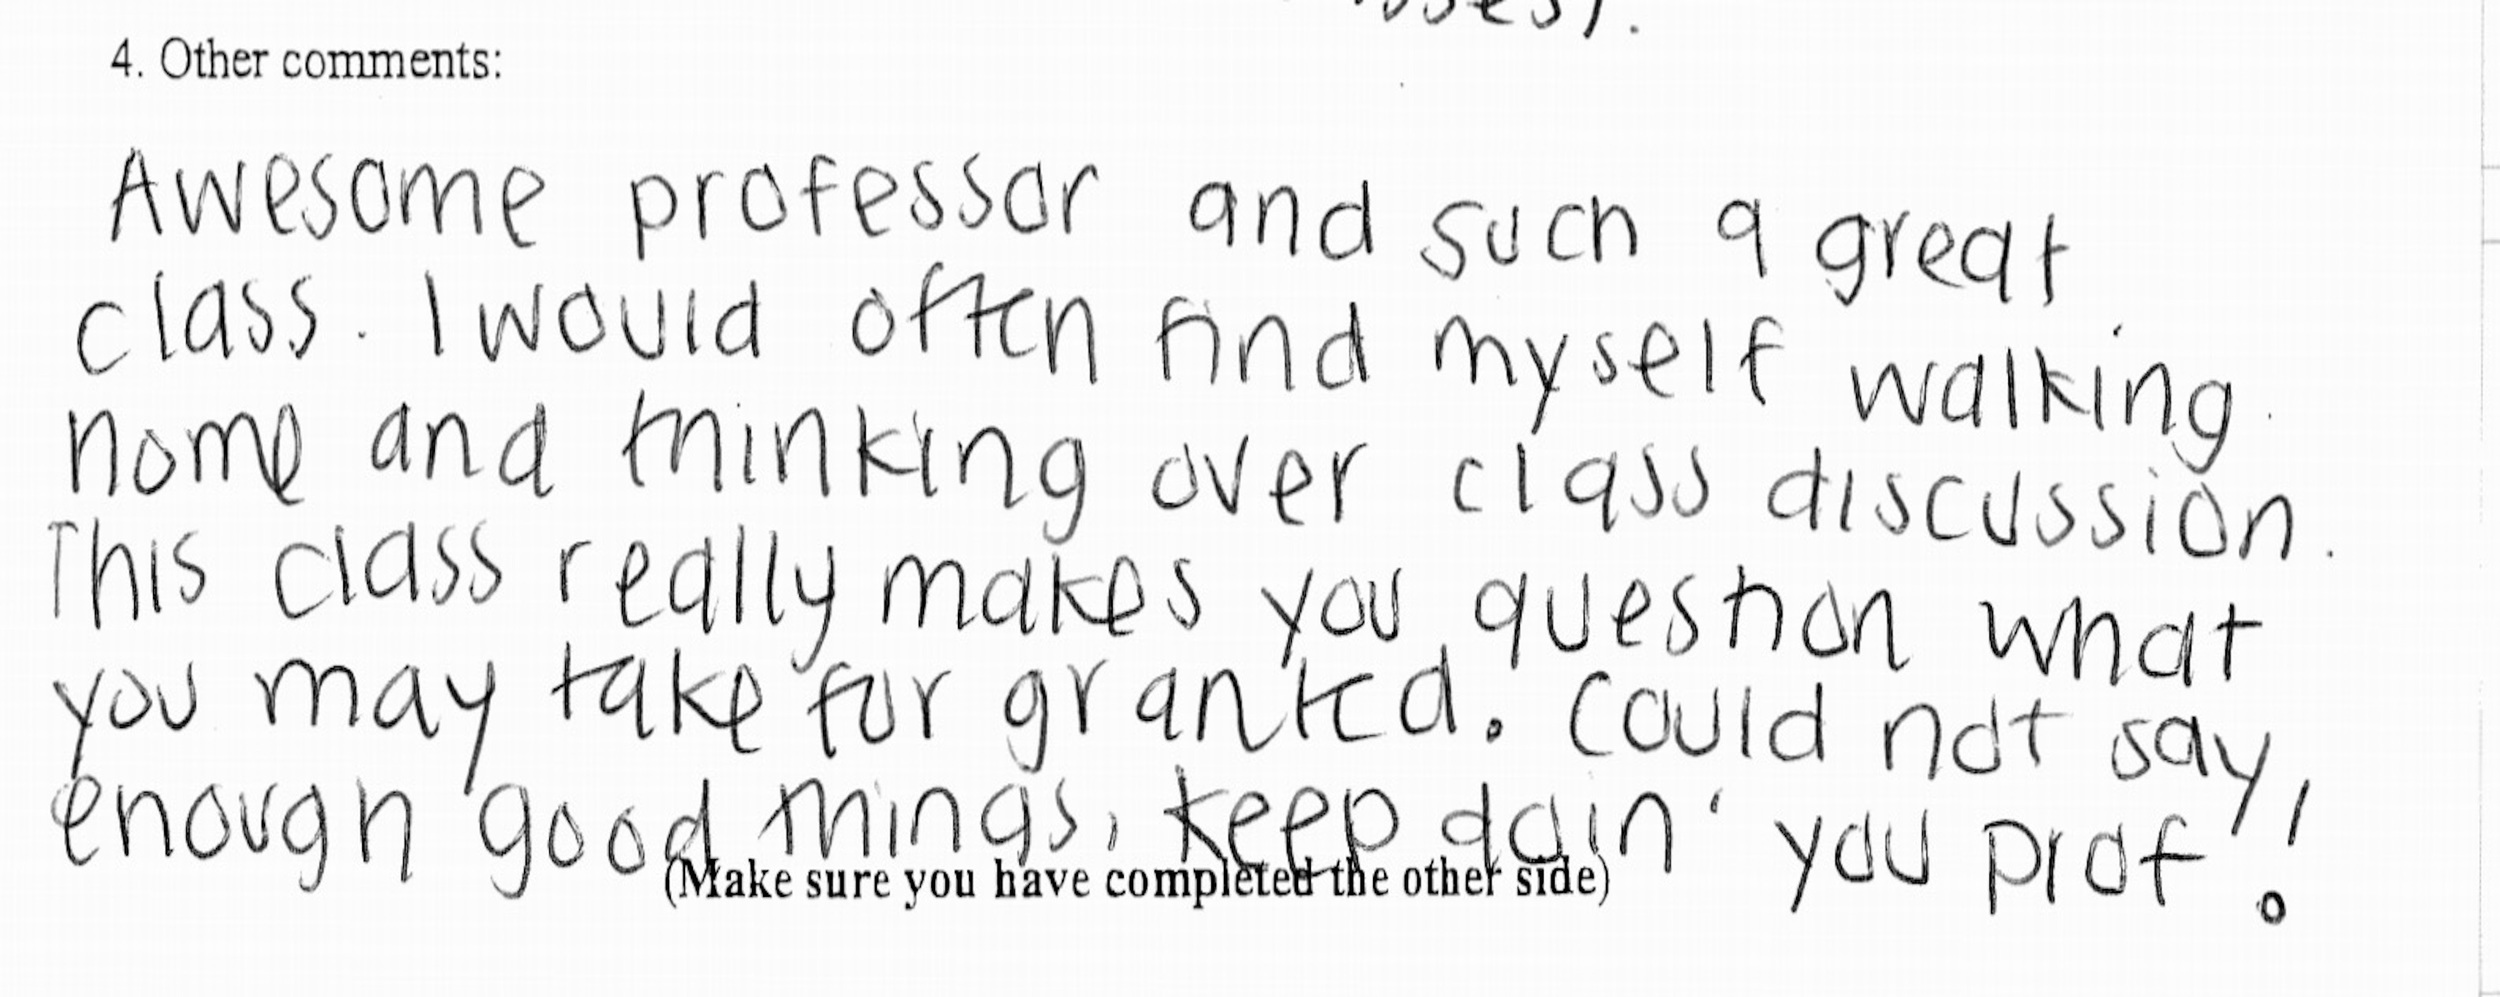 4. Other comments:
Awesome professor and such a great
class. I would often find myself walking
home and thinking over class discussion.
This class really makes you question what
you may take for granted. Could not say
enough good things, keep doin' you prof!
(Make sure you have completed the other side)